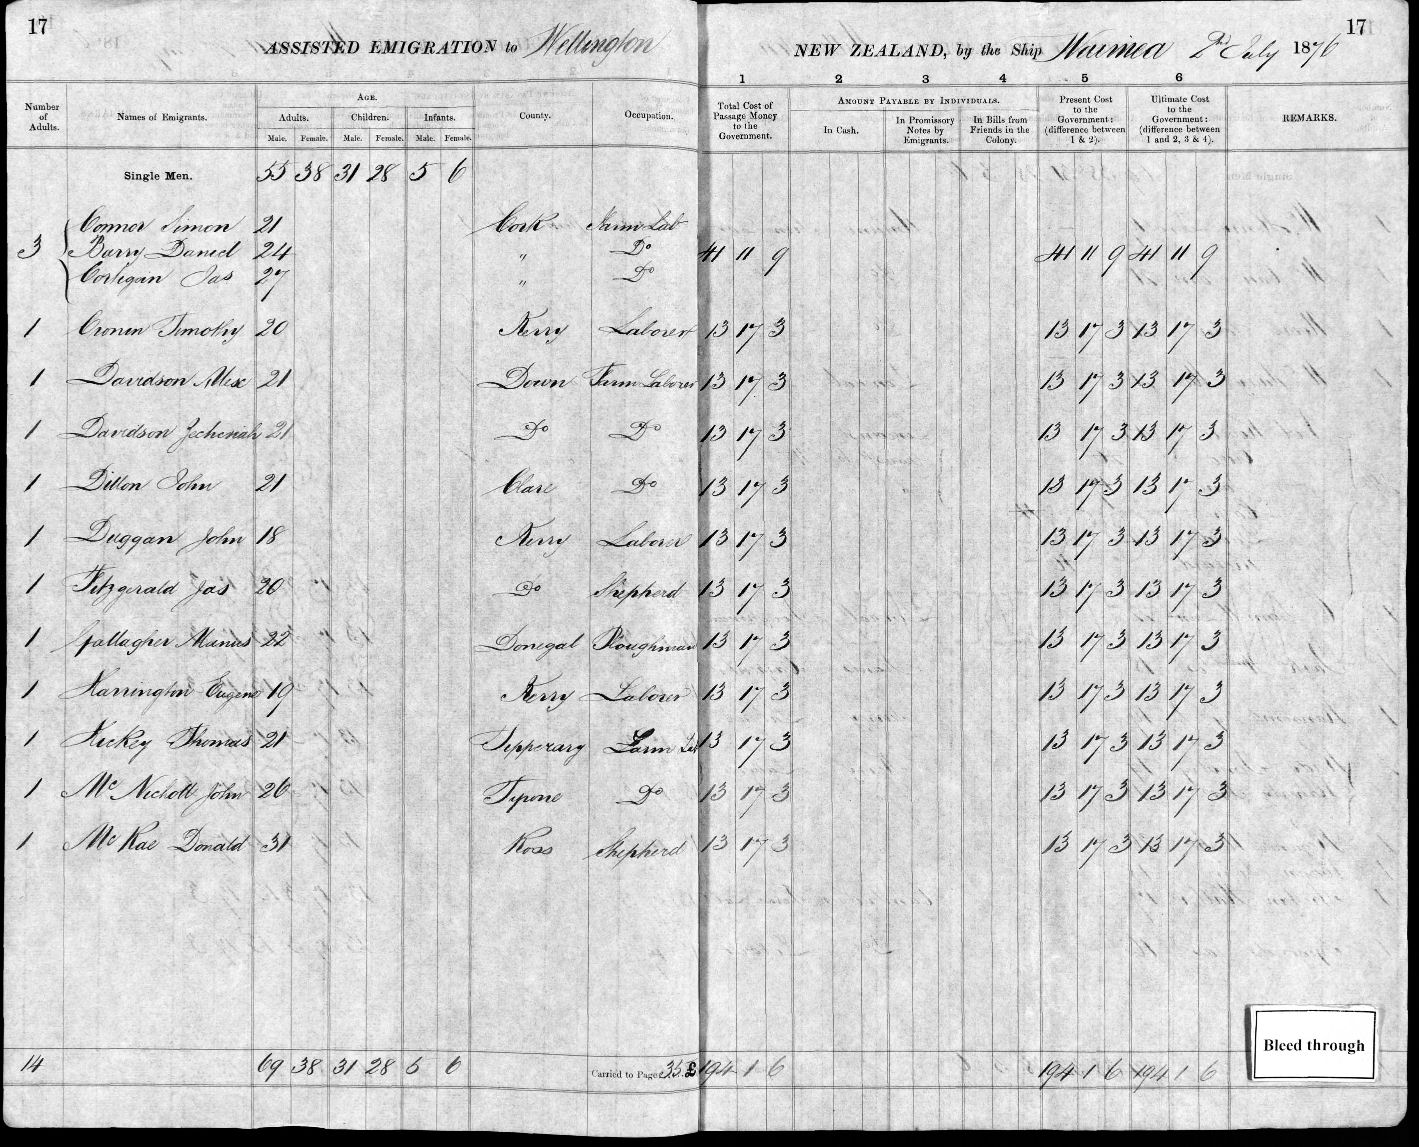 17 17
ASSISTED EMIGRATION to Wellington NEW ZEALAND, by the Ship Waimea 2nd July 1876
1 2 3 4 5 6
Number of Adults. Names of Emigrants. AGE. Adults. Male. Female. Children. Male. Female. Infants. Male. Female. County. Occupation. Total Cost of Passage Money to the Government. AMOUNT PAYABLE BY INDIVIDUALS. In Cash. In Promissory Notes by Emigrants. In Bills from Friends in the Colony. Present Cost to the Government: (difference between 1 & 2). Ultimate Cost to the Government: (difference between 1 and 2, 3 & 4). REMARKS.
Single Men. 55 38 31 28 5 6
Connor Simon 21 Cork Farm Lab
3 Barry Daniel 24 " Do 41 11 9 41 11 9 41 11 9
Corligan Jas 27 " Do
1 Cronin Timothy 20 Kerry Laborer 13 17 3 13 17 3 13 17 3
1 Davidson Alex 21 Down Farm Laborer 13 17 3 13 17 3 13 17 3
1 Davidson Zecheriah 21 Do Do 13 17 3 13 17 3 13 17 3
1 Dillon John 21 Clare Do 13 17 3 13 17 3 13 17 3
1 Duggan John 18 Kerry Laborer 13 17 3 13 17 3 13 17 3
1 Fitzgerald Jas 20 Do Shepherd 13 17 3 13 17 3 13 17 3
1 Gallagher Manus 22 Donegal Ploughman 13 17 3 13 17 3 13 17 3
1 Harrington Eugene 19 Kerry Laborer 13 17 3 13 17 3 13 17 3
1 Hickey Thomas 21 Tipperary Farm Lab 13 17 3 13 17 3 13 17 3
1 Mc Nicholl John 26 Tyrone Do 13 17 3 13 17 3 13 17 3
1 Mc Rae Donald 31 Ross Shepherd 13 17 3 13 17 3 13 17 3
Bleed through
14 69 38 31 28 5 6 Carried to Page 35 £ 194 1 6 194 1 6 194 1 6